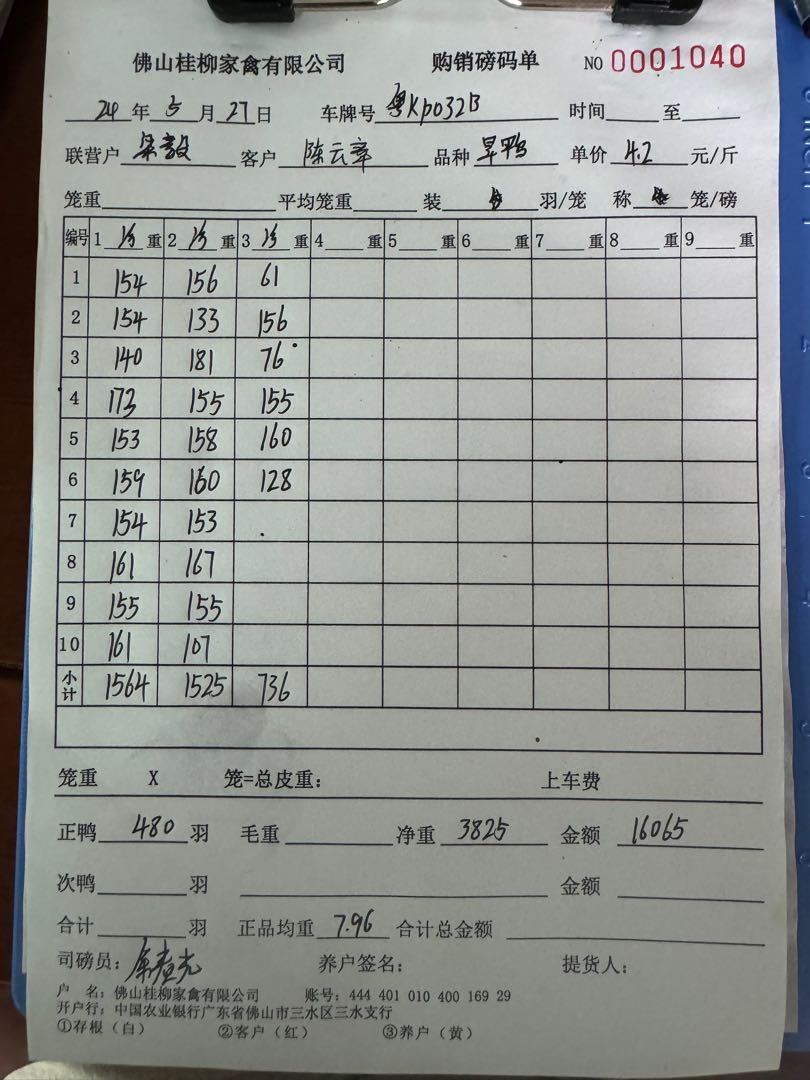 佛山桂柳家禽有限公司 购销磅码单 NO 0001040
24 年 5 月 27 日 车牌号 粤KP032B 时间 至
联营户 梁毅 客户 陈云章 品种 旱鸭 单价 4.2 元/斤
笼重 平均笼重 装 羽/笼 称 笼/磅
编号 1 净 重 2 净 重 3 净 重 4 重 5 重 6 重 7 重 8 重 9 重
1 154 156 61
2 154 133 156
3 140 181 76
4 173 155 155
5 153 158 160
6 159 160 128
7 154 153
8 161 167
9 155 155
10 161 107
小计 1564 1525 736
笼重 X 笼=总皮重: 上车费
正鸭 480 羽 毛重 净重 3825 金额 16065
次鸭 羽 金额
合计 羽 正品均重 7.96 合计总金额
司磅员: 养户签名: 提货人:
户 名: 佛山桂柳家禽有限公司 账号: 444 401 010 400 169 29
开户行: 中国农业银行广东省佛山市三水区三水支行
①存根(白) ②客户(红) ③养户(黄)